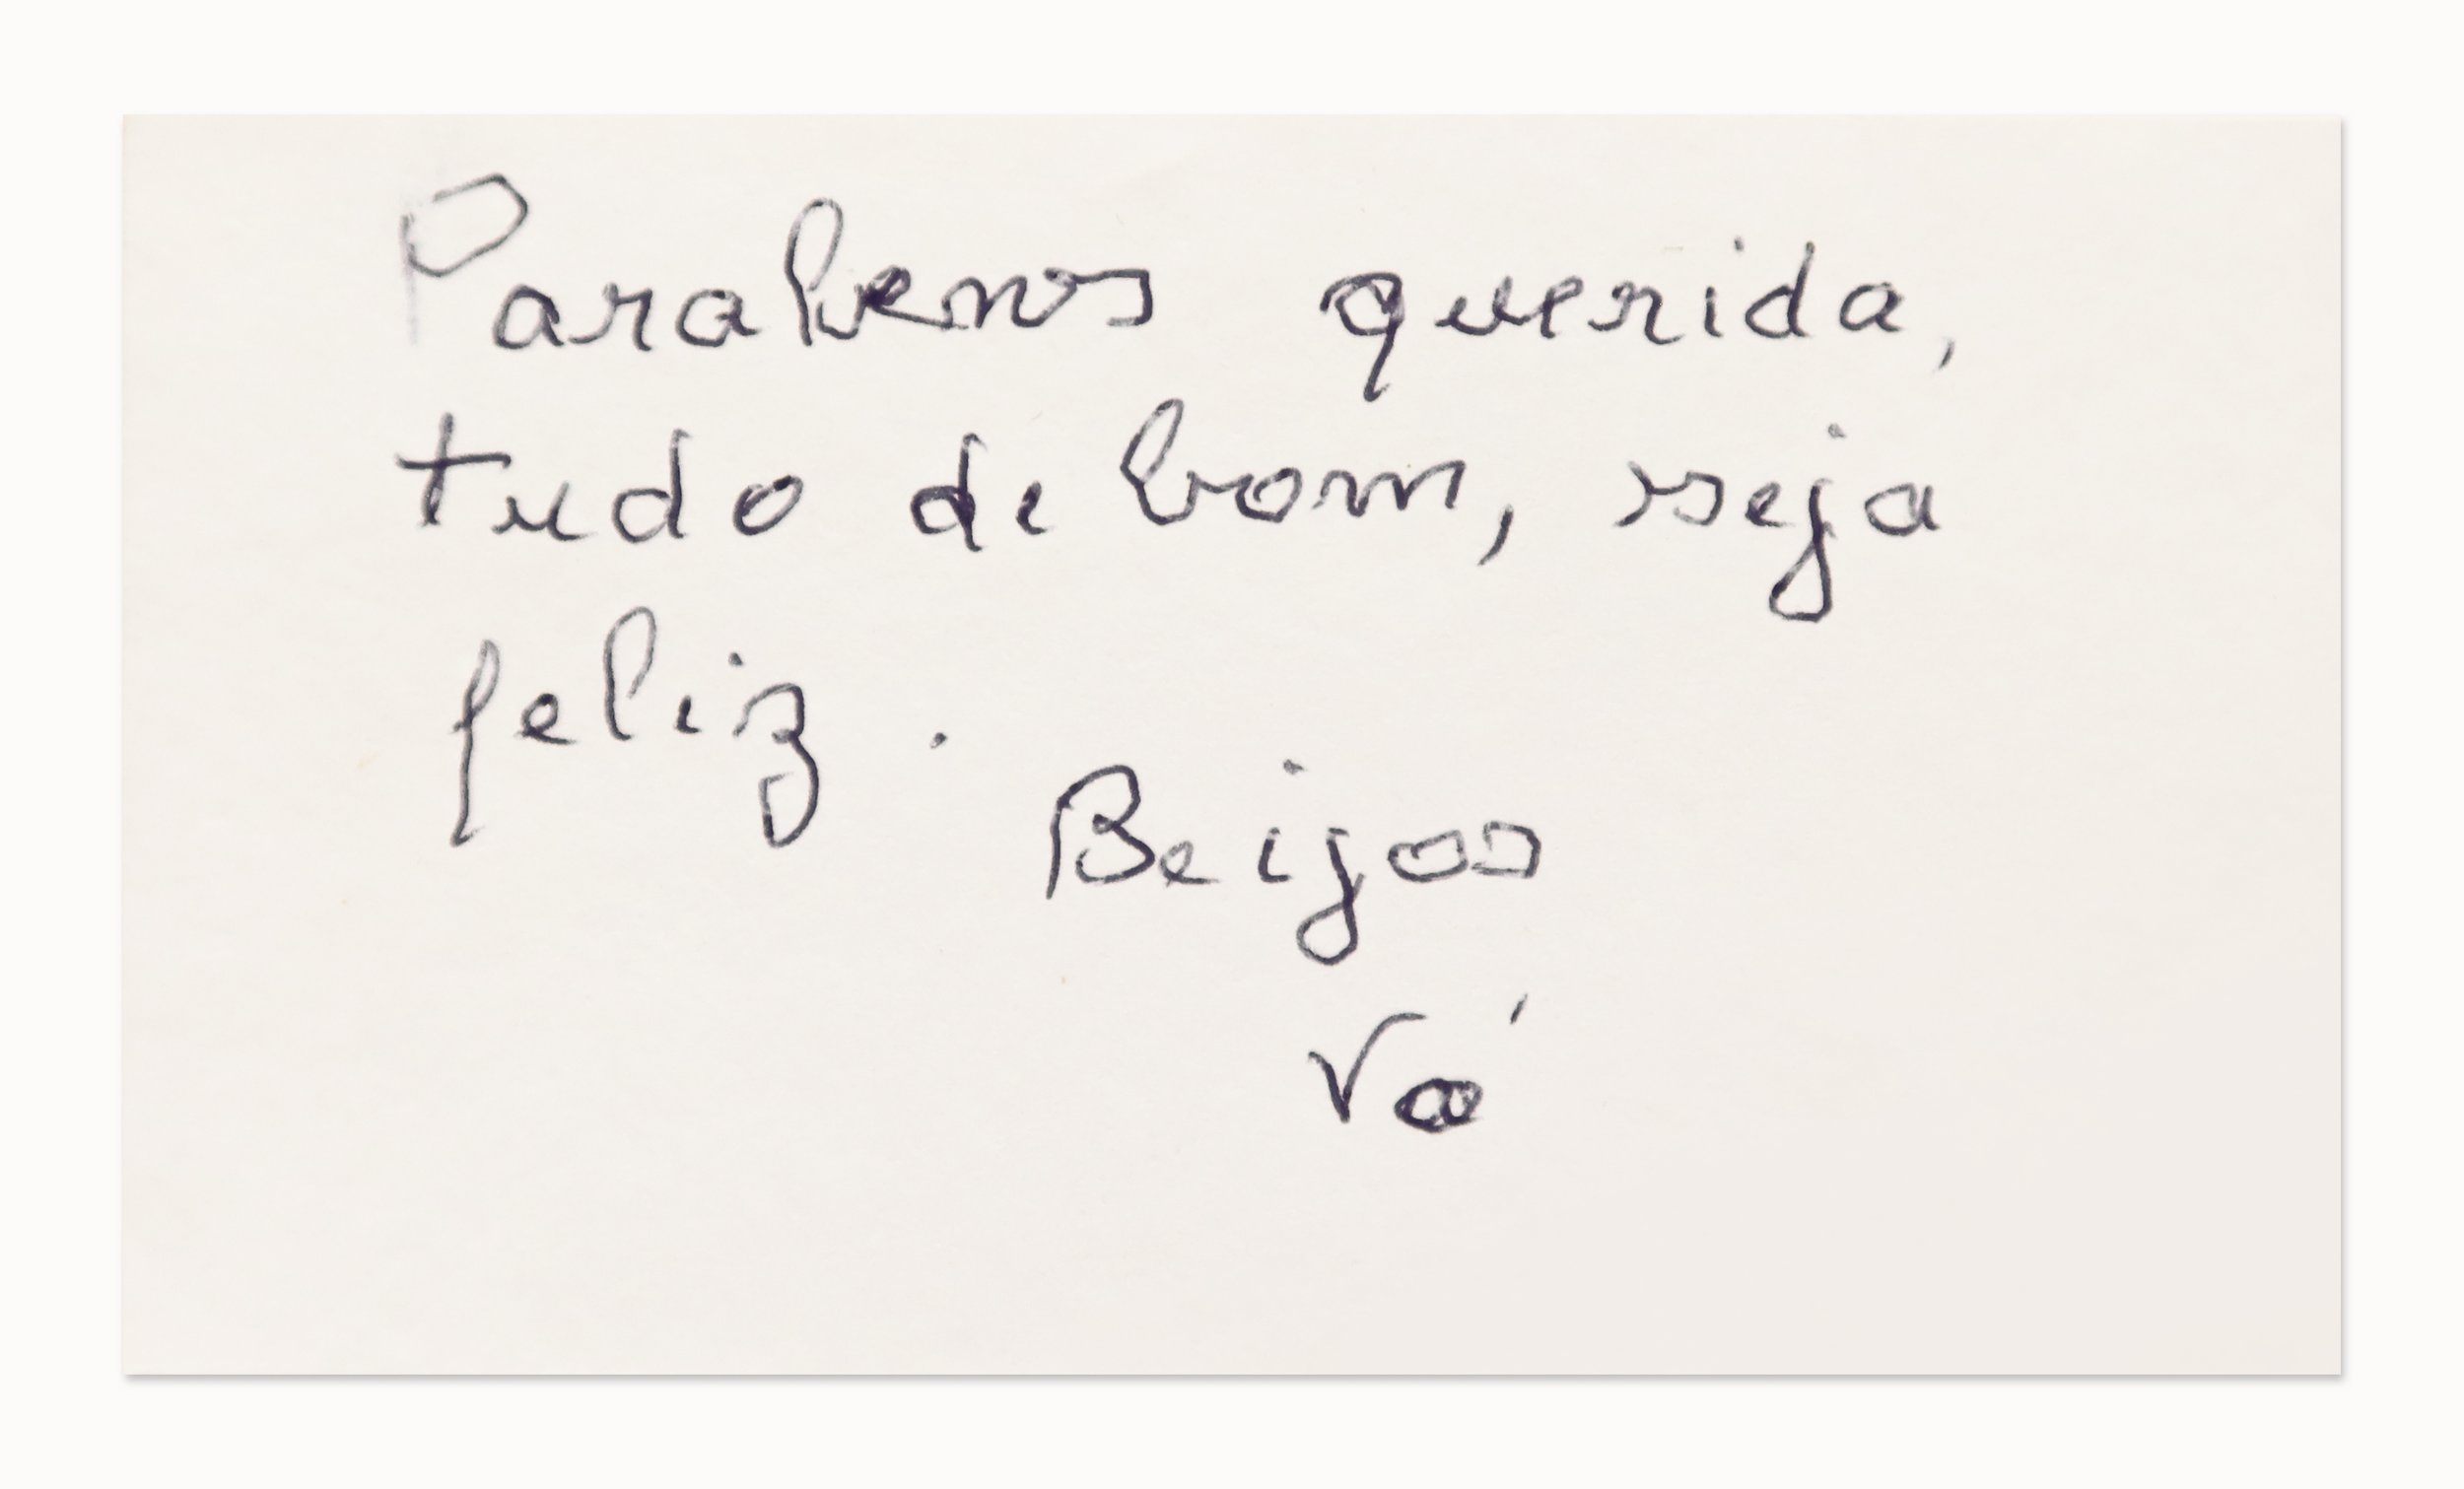 Parabens querida,
tudo de bom, seja
feliz.
Beijos
Vó